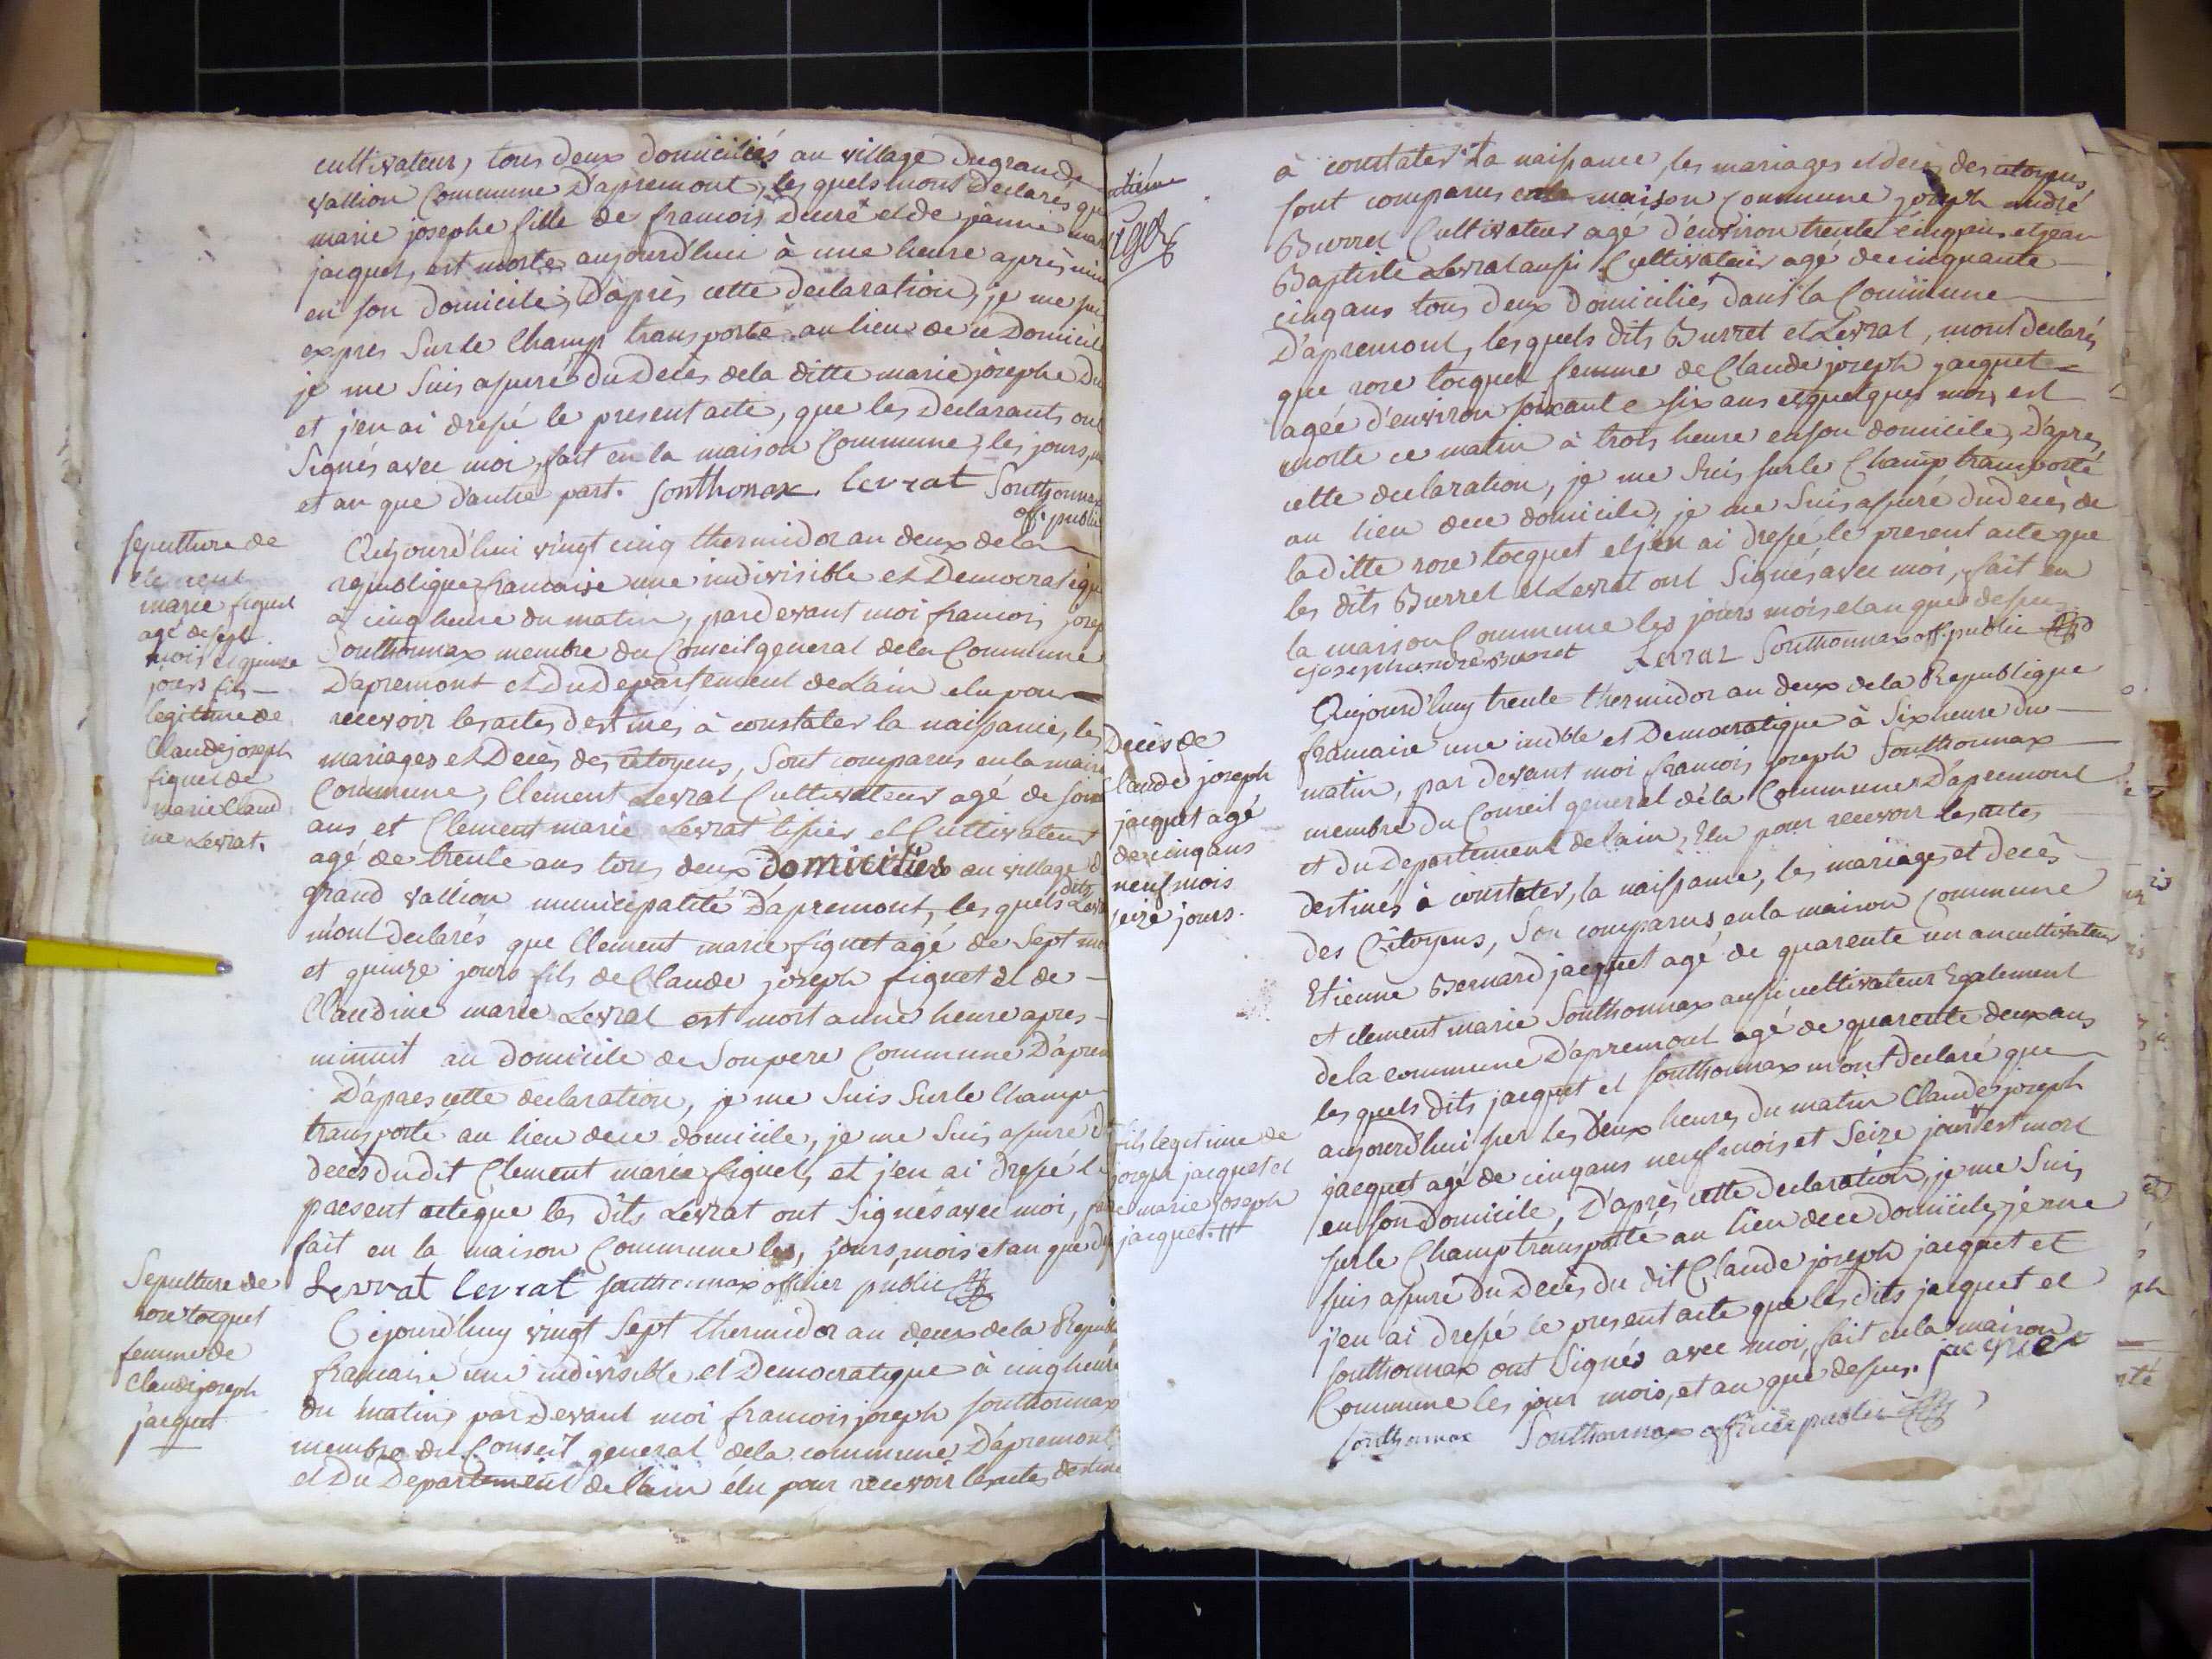 cultivateur, tous deux domiciliés au village du grand
vallion Commune D'apremont, les quels mont declarés que
marie josephe fille de francois Ducré et de janne mar
jacquet, est morte aujourd'hui à une heure après mi
en son domicile, D'après cette declaration, je me sui
expres Sur le Champ transporté au lieu de ce Domicil
je me Suis assuré du Decès dela ditte marie josephe Du
et j'en ai dressé le present acte, que les Declarants ont
Signés avec moi, fait en la maison Commune, les jours, m
et an que d'autre part. Sonthonax. levrat Southonnax
off. public
Sepulture de
clement
marie figuet
agé de sept
mois et quinze
jours fils
legitime de
Claude joseph
figuet de
marie Claud
ine Levrat.
Aujourd'hui vingt cinq thermidor an deux dela
republique francaise une indivisible et Democratique
à cinq heure du matin, pardevant moi francois josep
Southonnax membre du Conseil general dela Commune
D'apremont et Du Departement de L'ain elu pour
recevoir les actes destinés à constater la naissance, les
mariages et Decès des Citoyens, Sont comparus en la mais
Commune, Clement Levrat Cultivateur agé de
ans, et Clement marie Levrat et Cultivateur
agé de trente ans tous deux domiciliés au village d
grand vallion municipalité D'apremont, les quels dits Levra
m'ont declarés que Clement marie figuet agé de Sept mo
et quinze jours fils de Claude joseph figuet et de
Claudine marie Levrat est mort a une heure apres
minuit au domicile de Son pere Commune D'aprem
D'apres cette declaration, je me Suis Sur le Champ
transporté au lieu de ce domicile, je me Suis assuré d
decès du dit Clement marie figuet, et j'en ai dressé l
present acte que les dits Levrat ont Signés avec moi,
fait en la maison Commune les, jours, mois et an que d
Levrat levrat southonnax officier public
Sepulture de
rose tocquet
femme de
Claude joseph
jacquet
Cejourd'huy vingt Sept thermidor an deux dela Republi
francaise une indivisible et Democratique à cinq heure
du matin, par Devant moi francois joseph southonnax
membre du Conseil general dela commune D'apremont
et Du Departement de l'ain élu pour recevoir les actes destine
à constater la naissance, les mariages et decès des citoyens
sont comparus en la maison Commune joseph andré
Burret Cultivateur agé d'environ trente cinq ans et jean
Baptiste Levrat aussi Cultivateur agé de cinquante
cinq ans tous deux Domiciliés dans la Commune
D'apremont, les quels dits Burret et Levrat, m'ont declarés
que rose tocquet femme de Claude joseph jacquet
agée d'environ soixante six ans et quelques mois est
morte ce matin à trois heure en son domicile, D'après
cette declaration, je me Suis sur le Champ transporté
au lieu de ce domicile, je me Suis assuré du decès de
la ditte rose tocquet et j'en ai dressé le present acte que
les dits Burret et Levrat ont Signés avec moi, fait en
la maison Commune les jours mois et an que dessus
joseph andré Burret Levrat Southonnax off. public
Decès de
Claude joseph
jacquet agé
de cinq ans
neuf mois
seize jours.
Aujourd'huy trente thermidor an deux dela Republique
francaise une indble et Democratique à Six heure du
matin, par devant moi francois joseph Southonnax
membre du Conseil general de la Commune D'apremont
et du Departement de l'ain, Elu pour recevoir les actes
destinés à constater, la naissance, les mariages et decès
des Citoyens, Son comparus, en la maison Commune
Etienne Bernard jacquet agé de quarente un an cultivateur
et clement marie Southonnax aussi cultivateur Egalement
de la commune D'apremont agé de quarente deux ans
les quels dits jacquet et southonnax m'ont declaré que
aujourd'hui sur les Deux heures du matin Claude joseph
jacquet agé de cinq ans neuf mois et Seize jours est mort
en son Domicile, D'après cette declaration, je me Suis
sur le Champ transporté au lieu de ce domicile, je me
suis assuré du Decès du dit Claude joseph jacquet et
j'en ai dressé le present acte que les dits jacquet et
southonnax ont Signés avec moi, fait en la maison
Commune les jour mois, et an que dessus. jacquet
southonnax Southonnax officier public
fils legitime de
jacquet et
marie joseph
jacquet.